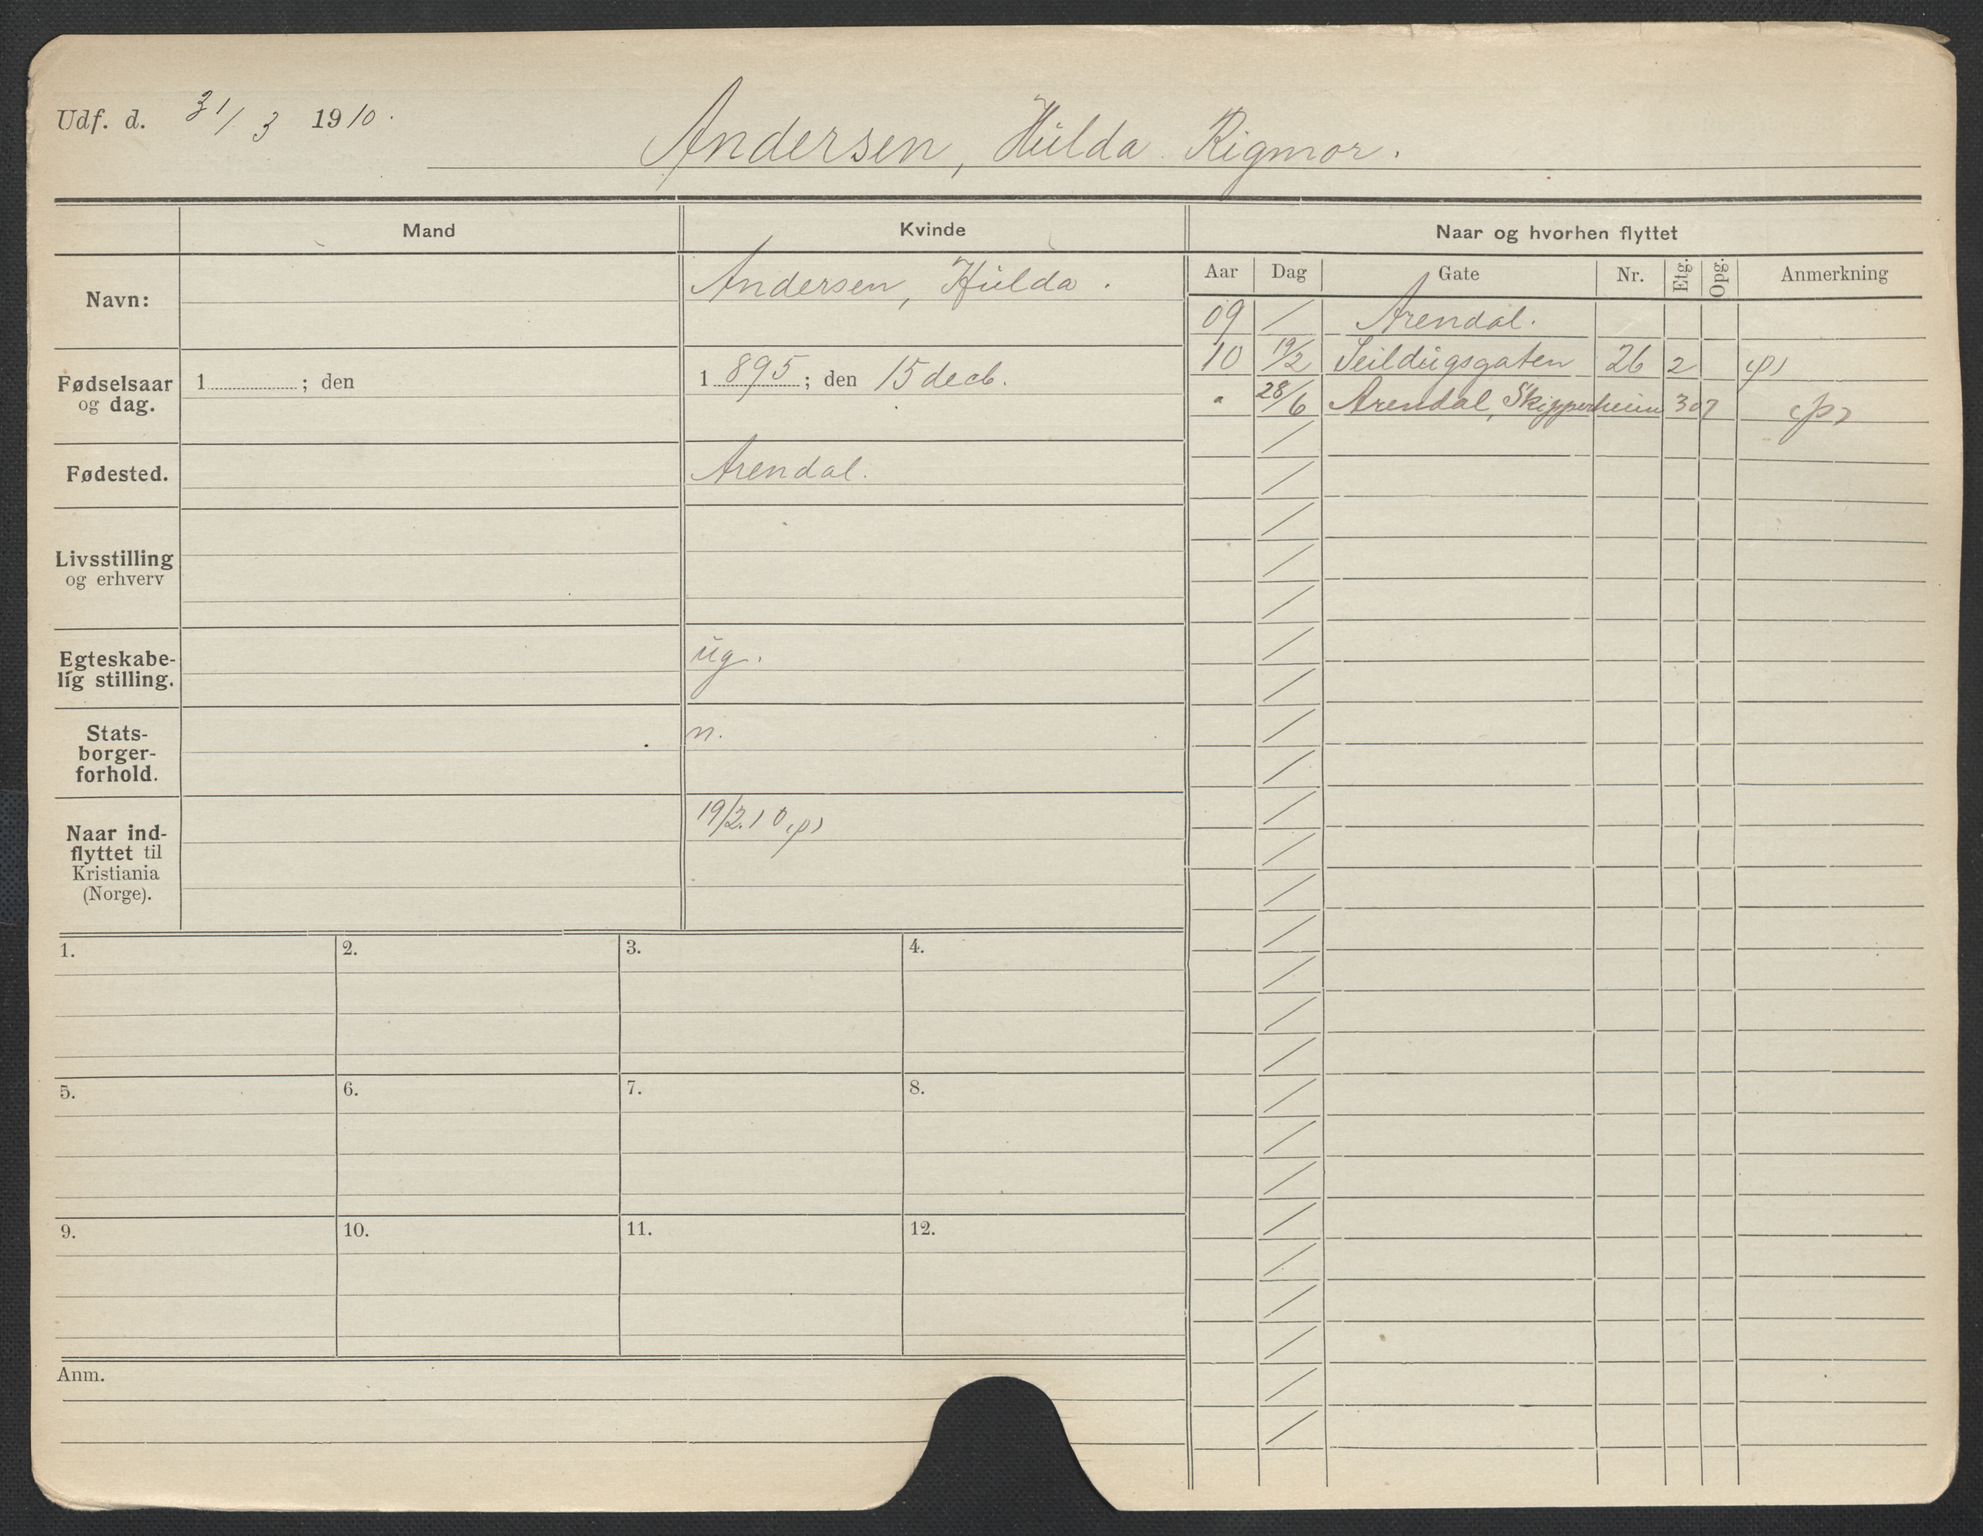 Udf. d. 31/3 1910.
Andersen, Hulda Rigmor.
Mand
Kvinde
Naar og hvorhen flyttet
Navn:
Andersen, Hulda.
Aar Dag Gate Nr. Etg. Opg. Anmerkning
09 / Arendal.
10 19/2 Seildugsgaten 26 2 (p)
" 28/6 Arendal, Skipperheim 307 (p)
Fødselsaar
og dag.
1 ; den
1 895 ; den 15 decb.
Fødested.
Arendal.
Livsstilling
og erhverv
Egteskabe-
lig stilling.
ug.
Stats-
borger-
forhold.
n.
Naar ind-
flyttet til
Kristiania
(Norge).
19/2.10 (p)
1. 2. 3. 4.
5. 6. 7. 8.
9. 10. 11. 12.
Anm.